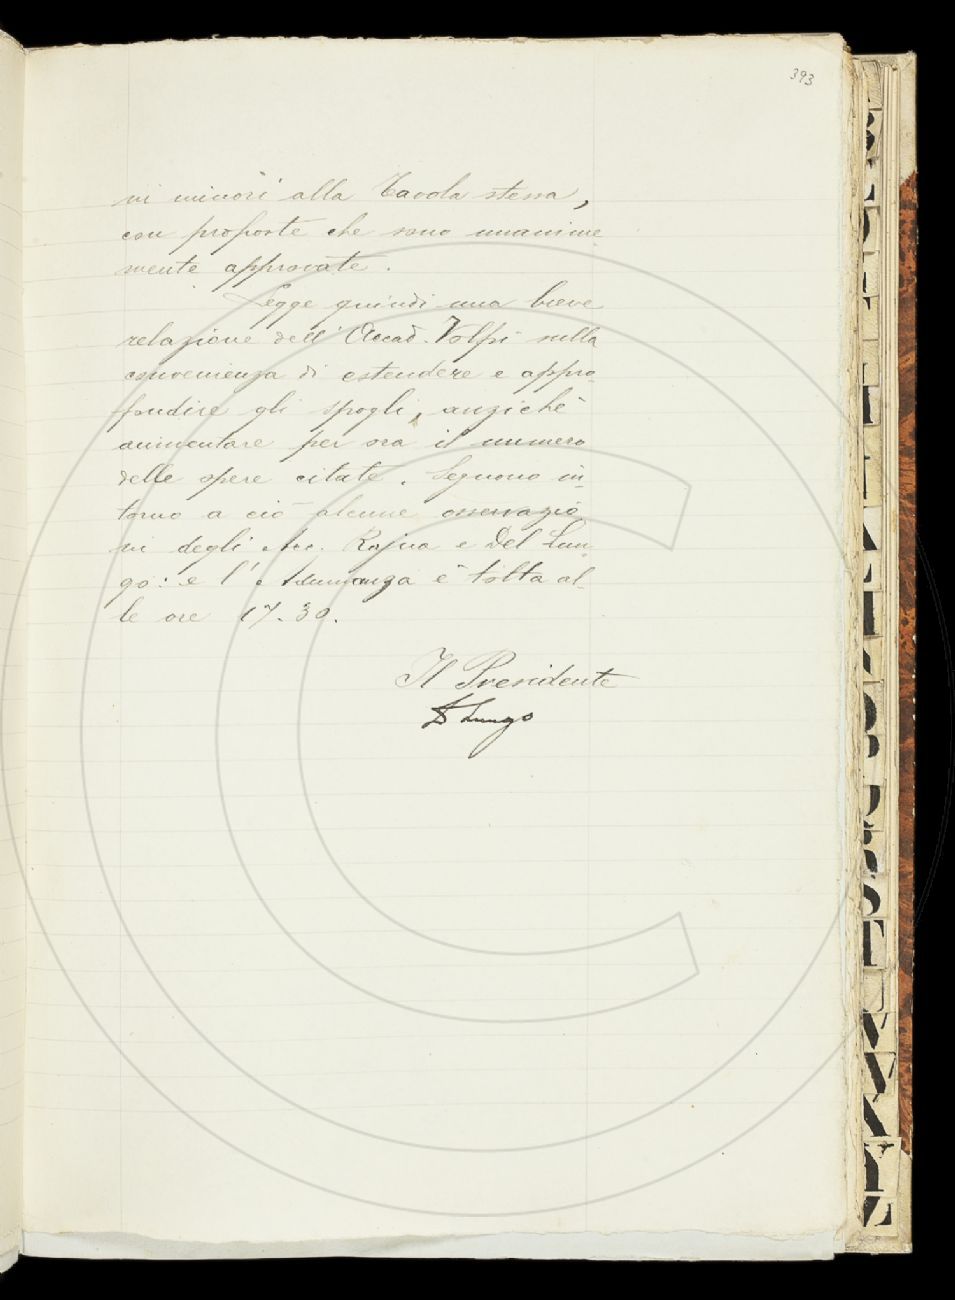 393
ni minori alla Tavola stessa,
con proposte che sono unanime
mente approvate.
Legge quindi una breve
relazione dell' Accad. Volpi sulla
convenienza di estendere e appro-
fondire gli spogli, anzichè
aumentare per ora il numero
delle opere citate. Seguono in-
torno a ciò alcune osservazio
ni degli Acc. Rajna e Del Lun
go: e l'Adunanza è tolta al-
le ore 17.30.
Il Presidente
D Lungo